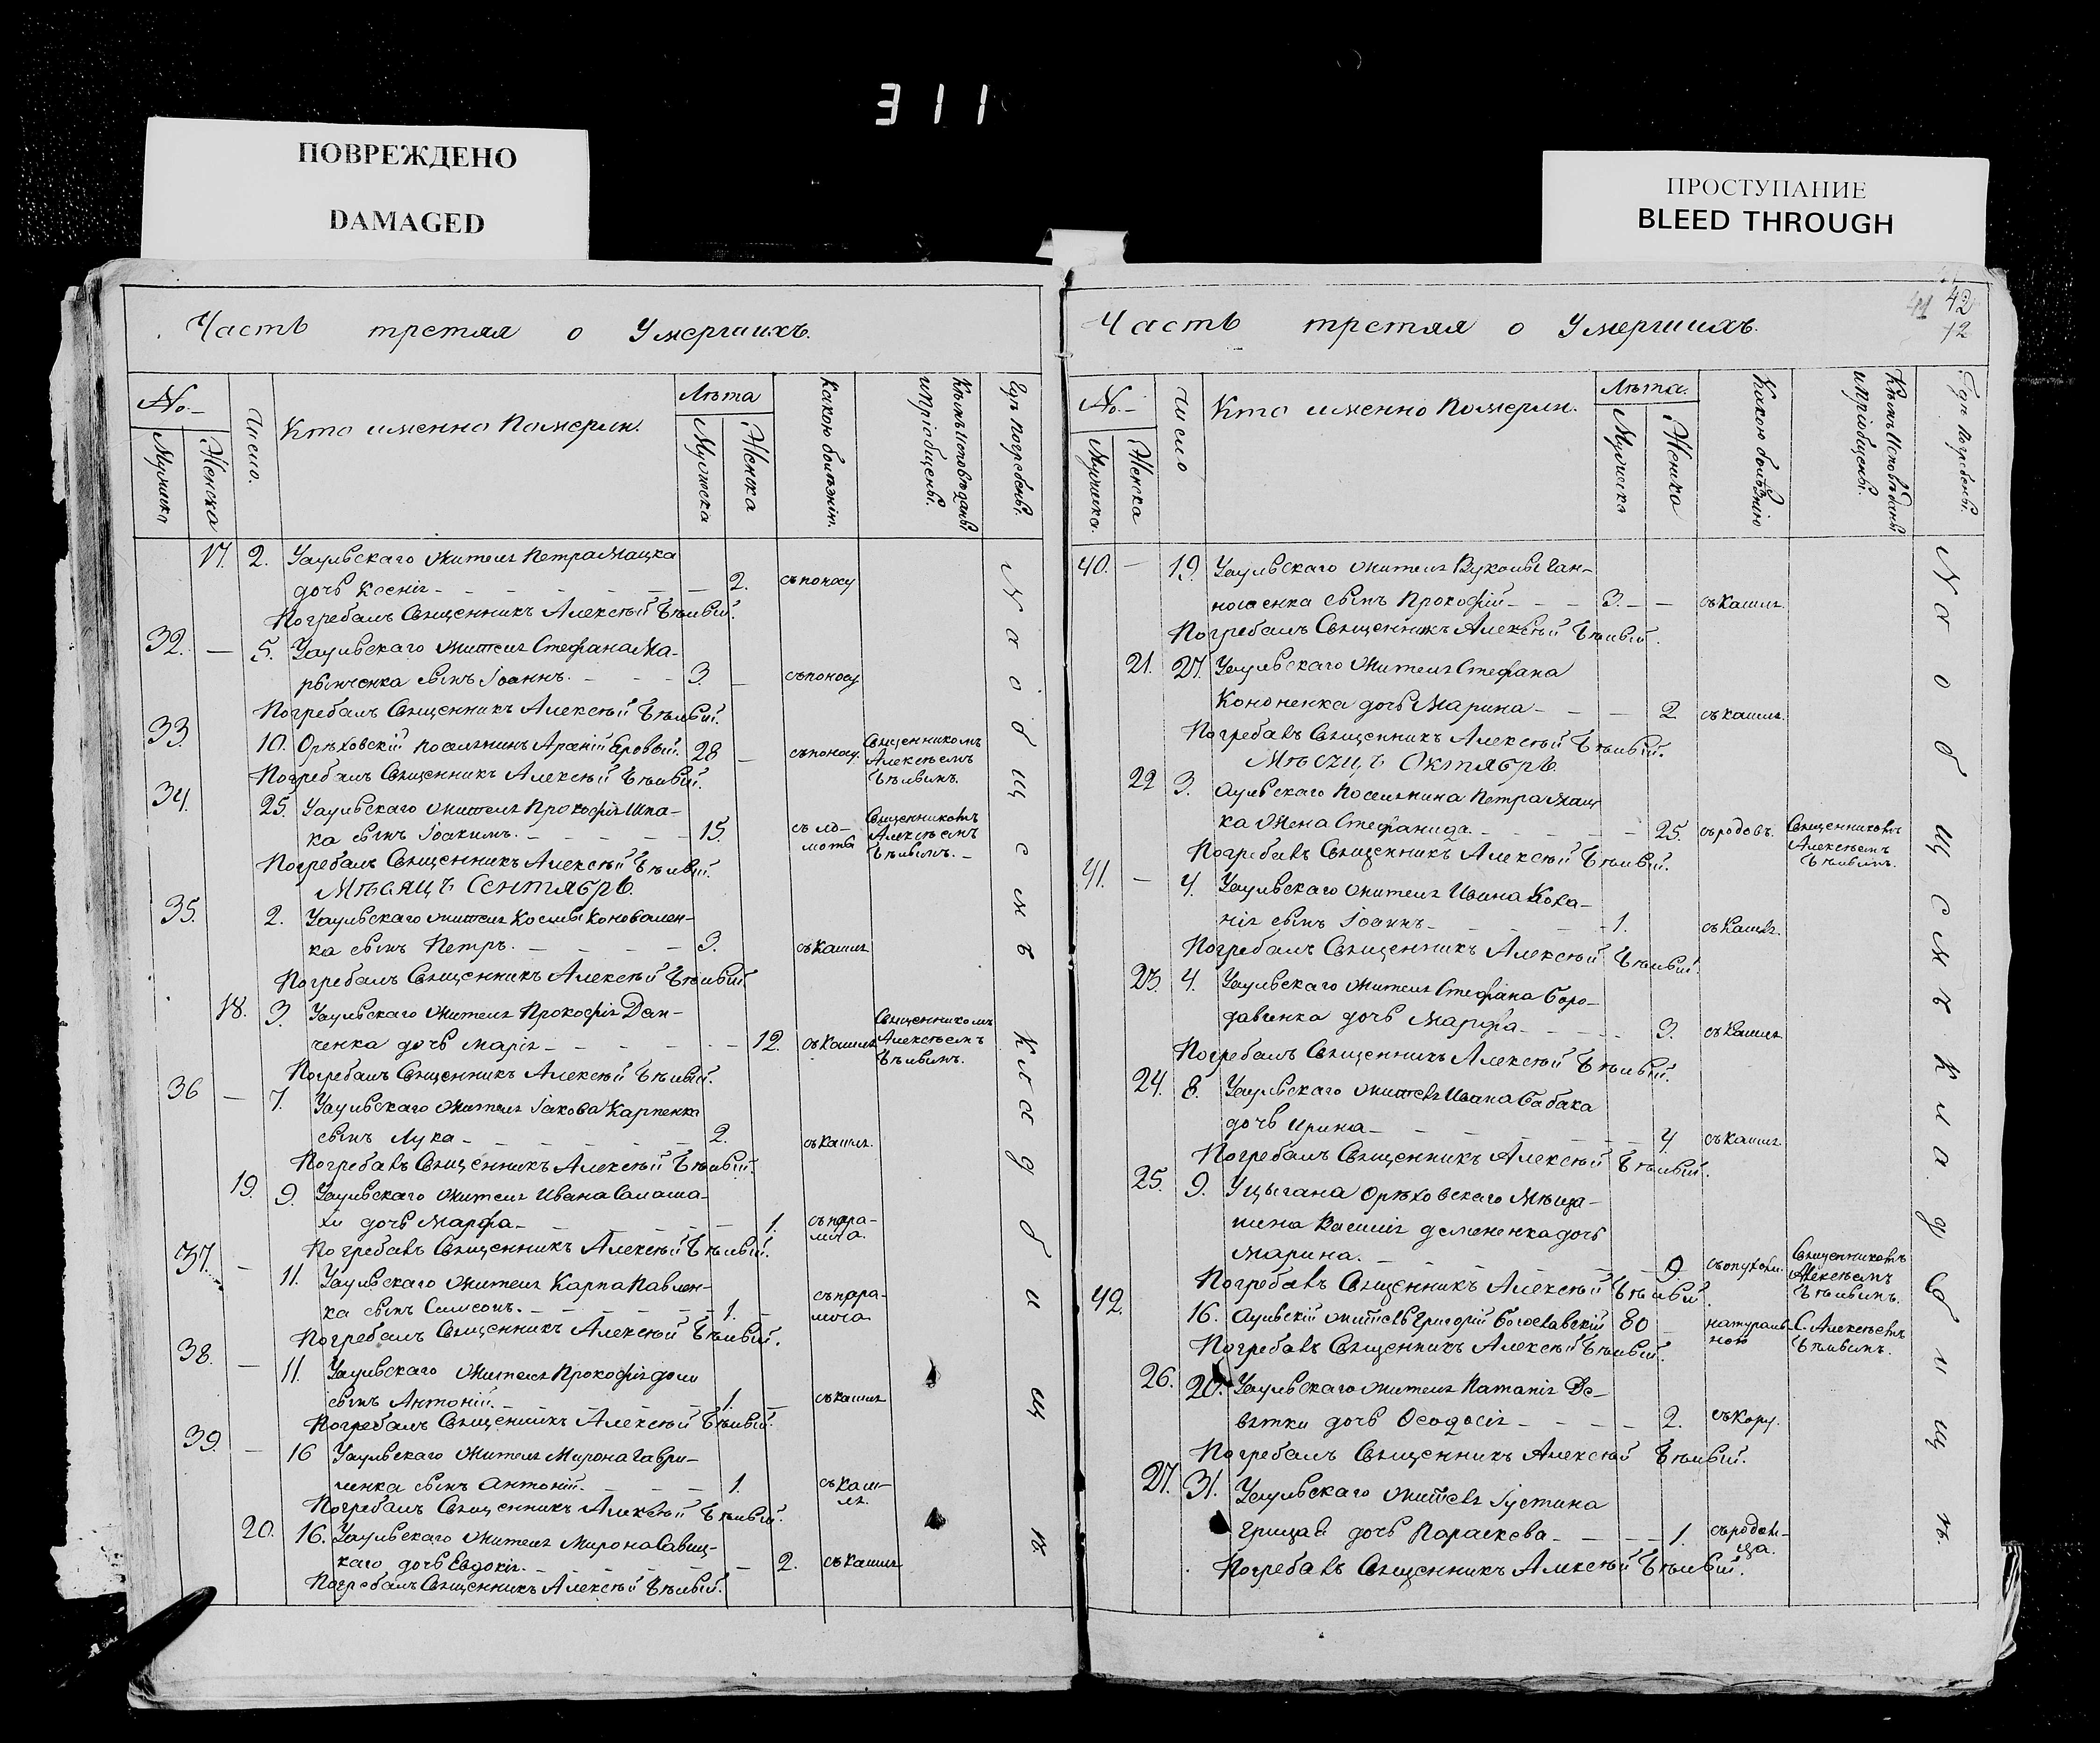 311
ПОВРЕЖДЕНО
DAMAGED
ПРОСТУПАНИЕ
BLEED THROUGH
Часть третяя о Умершихъ.
No.
Мужеска
Женска
Число.
Кто именно Померли.
Лѣта
Мужеска
Женска
Какою болѣзнію.
Кѣмъ Исповѣданы
и пріобщены.
Гдѣ погребены.
17. 2. Уаульскаго жителя Петра Мацка
дочь Ксенія 2. съ поносу
Погребалъ Священникъ Алексѣй Бѣлый.
32. — 5. Уаульскаго жителя Стефана Ма-
рынченка сынъ Іоаннъ. 3. — съ поносу
Погребалъ Священникъ Алексѣй Бѣлый.
33. 10. Орѣховскій поселянинъ Яровый. 28 — съ поносу. Священникомъ
Алексѣемъ
Бѣлымъ.
Погребалъ Священникъ Алексѣй Бѣлый.
34. 25. Уаульскаго жителя Прокофія Шпа-
ка сынъ Іоакимъ. 15. съ ло-
мота Священникомъ
Алексѣемъ
Бѣлымъ.
Погребалъ Священникъ Алексѣй Бѣлый.
Мѣсяцъ Сентябрь.
35. 2. Уаульскаго жителя Космы Коновален-
ка сынъ Петръ. 3. съ Кашля
Погребалъ Священникъ Алексѣй Бѣлый
18. 3. Уаульскаго жителя Прокофія Дан-
ченка дочь Марія 12. съ Кашля Священникомъ
Алексѣемъ
Бѣлымъ.
Погребалъ Священникъ Алексѣй Бѣлый.
36 — 7. Уаульскаго жителя Іакова Карпенка
сынъ Лука 2. съ кашля.
Погребавъ Священникъ Алексѣй Бѣлый.
19. 9. Уаульскаго жителя Ивана Салаша-
хи дочь Марфа 1.
Погребавъ Священникъ Алексѣй Бѣлый.
37. — 11. Уаульскаго жителя Карпа Павлен-
ка сынъ Симеонъ. 1.
Погребалъ Священникъ Алексѣй Бѣлый.
38. — 11. Уаульскаго жителя Прокофія
сынъ Антоній. 1. — съ кашля
Погребалъ Священникъ Алексѣй Бѣлый.
39. — 16 Уаульскаго жителя Мирона Гаври-
ленка сынъ Антоній. 1. съ каш-
ля.
Погребалъ Священникъ Алексѣй Бѣлый.
20. 16. Уаульскаго жителя Мирона Савиц-
каго дочь Евдокія. 2. съ Кашля
Погребалъ Священникъ Алексѣй Бѣлый.
На общемъ кладбищѣ.
41 42
12
Часть третяя о Умершихъ.
No.
Мужеска.
Женска
Число
Кто именно Померли.
Лѣта.
Мужеска
Женска
Какою болѣзнію
Кѣмъ Исповѣданы
и пріобщены.
Гдѣ погребены.
40. — 19. Уаульскаго жителя Вуколы Ган-
ношенка сынъ Прокофій 3. — съ Кашля.
Погребалъ Священникъ Алексѣй Бѣлый.
21. 27. Уаульскаго жителя Стефана
Кононенка дочь Марина 2 съ кашля.
Погребавъ Священникъ Алексѣй Бѣлый.
Мѣсяцъ Октябрь.
22 3. Аульскаго Поселянина Петра Мац
ка жена Стефанида. 25. съ родовъ. Священникомъ
Алексѣемъ
Бѣлымъ.
Погребавъ Священникъ Алексѣй Бѣлый.
41. — 4. Уаульскаго жителя Ивана Коха-
нія сынъ Іоаннъ 1. съ Кашля.
Погребалъ Священникъ Алексѣй Бѣлый.
23. 4. Уаульскаго жителя Стефана Боро-
давченка дочь Марфа 3. съ Кашля
Погребалъ Священникъ Алексѣй Бѣлый.
24. 8. Уаульскаго жителя Ивана Бабака
дочь Ирина 4. съ кашля.
Погребалъ Священникъ Алексѣй Бѣлый.
25. 9. У цыгана Орѣховскаго Мѣща-
нина Василія Демененка дочь
Марина. 9. съ опухоли. Священникомъ
Алексѣемъ
Бѣлымъ.
Погребавъ Священникъ Алексѣй Бѣлый.
42. 16. Аульскій житель Григорій Богославскій 80 — натураль-
ною С. Алексѣемъ
Бѣлымъ.
Погребавъ Священникъ Алексѣй Бѣлый.
26. 20. Уаульскаго жителя Патапія Де-
вятки дочь Ѳеодосія 2. съ Кору.
Погребалъ Священникъ Алексѣй Бѣлый.
27. 31. Уаульскаго жителя Іустина
Грицая дочь Параскева 1. съ родим-
ца.
Погребавъ Священникъ Алексѣй Бѣлый.
На общемъ кладбищѣ.